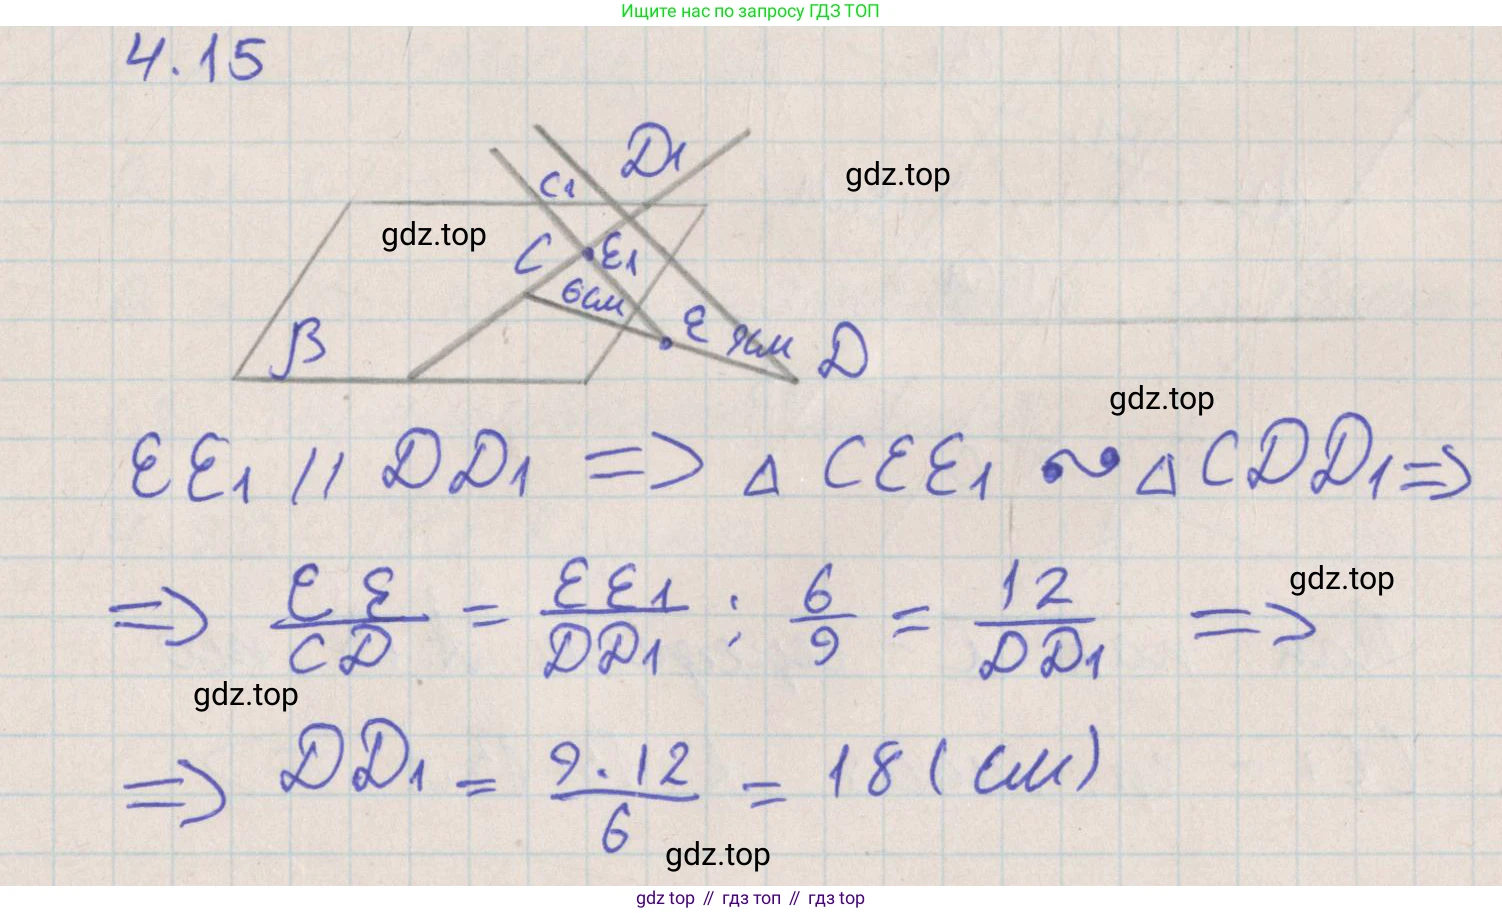 Ищите нас по запросу ГДЗ ТОП
4.15
D1
C1
gdz.top
gdz.top
C
E1
6см
E
9см
D
β
gdz.top
EE1 // DD1 => △ CEE1 ∾ △ CDD1 =>
gdz.top
=> EE/CD = EE1/DD1 ; 6/9 = 12/DD1 =>
gdz.top
=> DD1 = 9·12/6 = 18 (см)
gdz.top
gdz top // гдз топ // гдз top